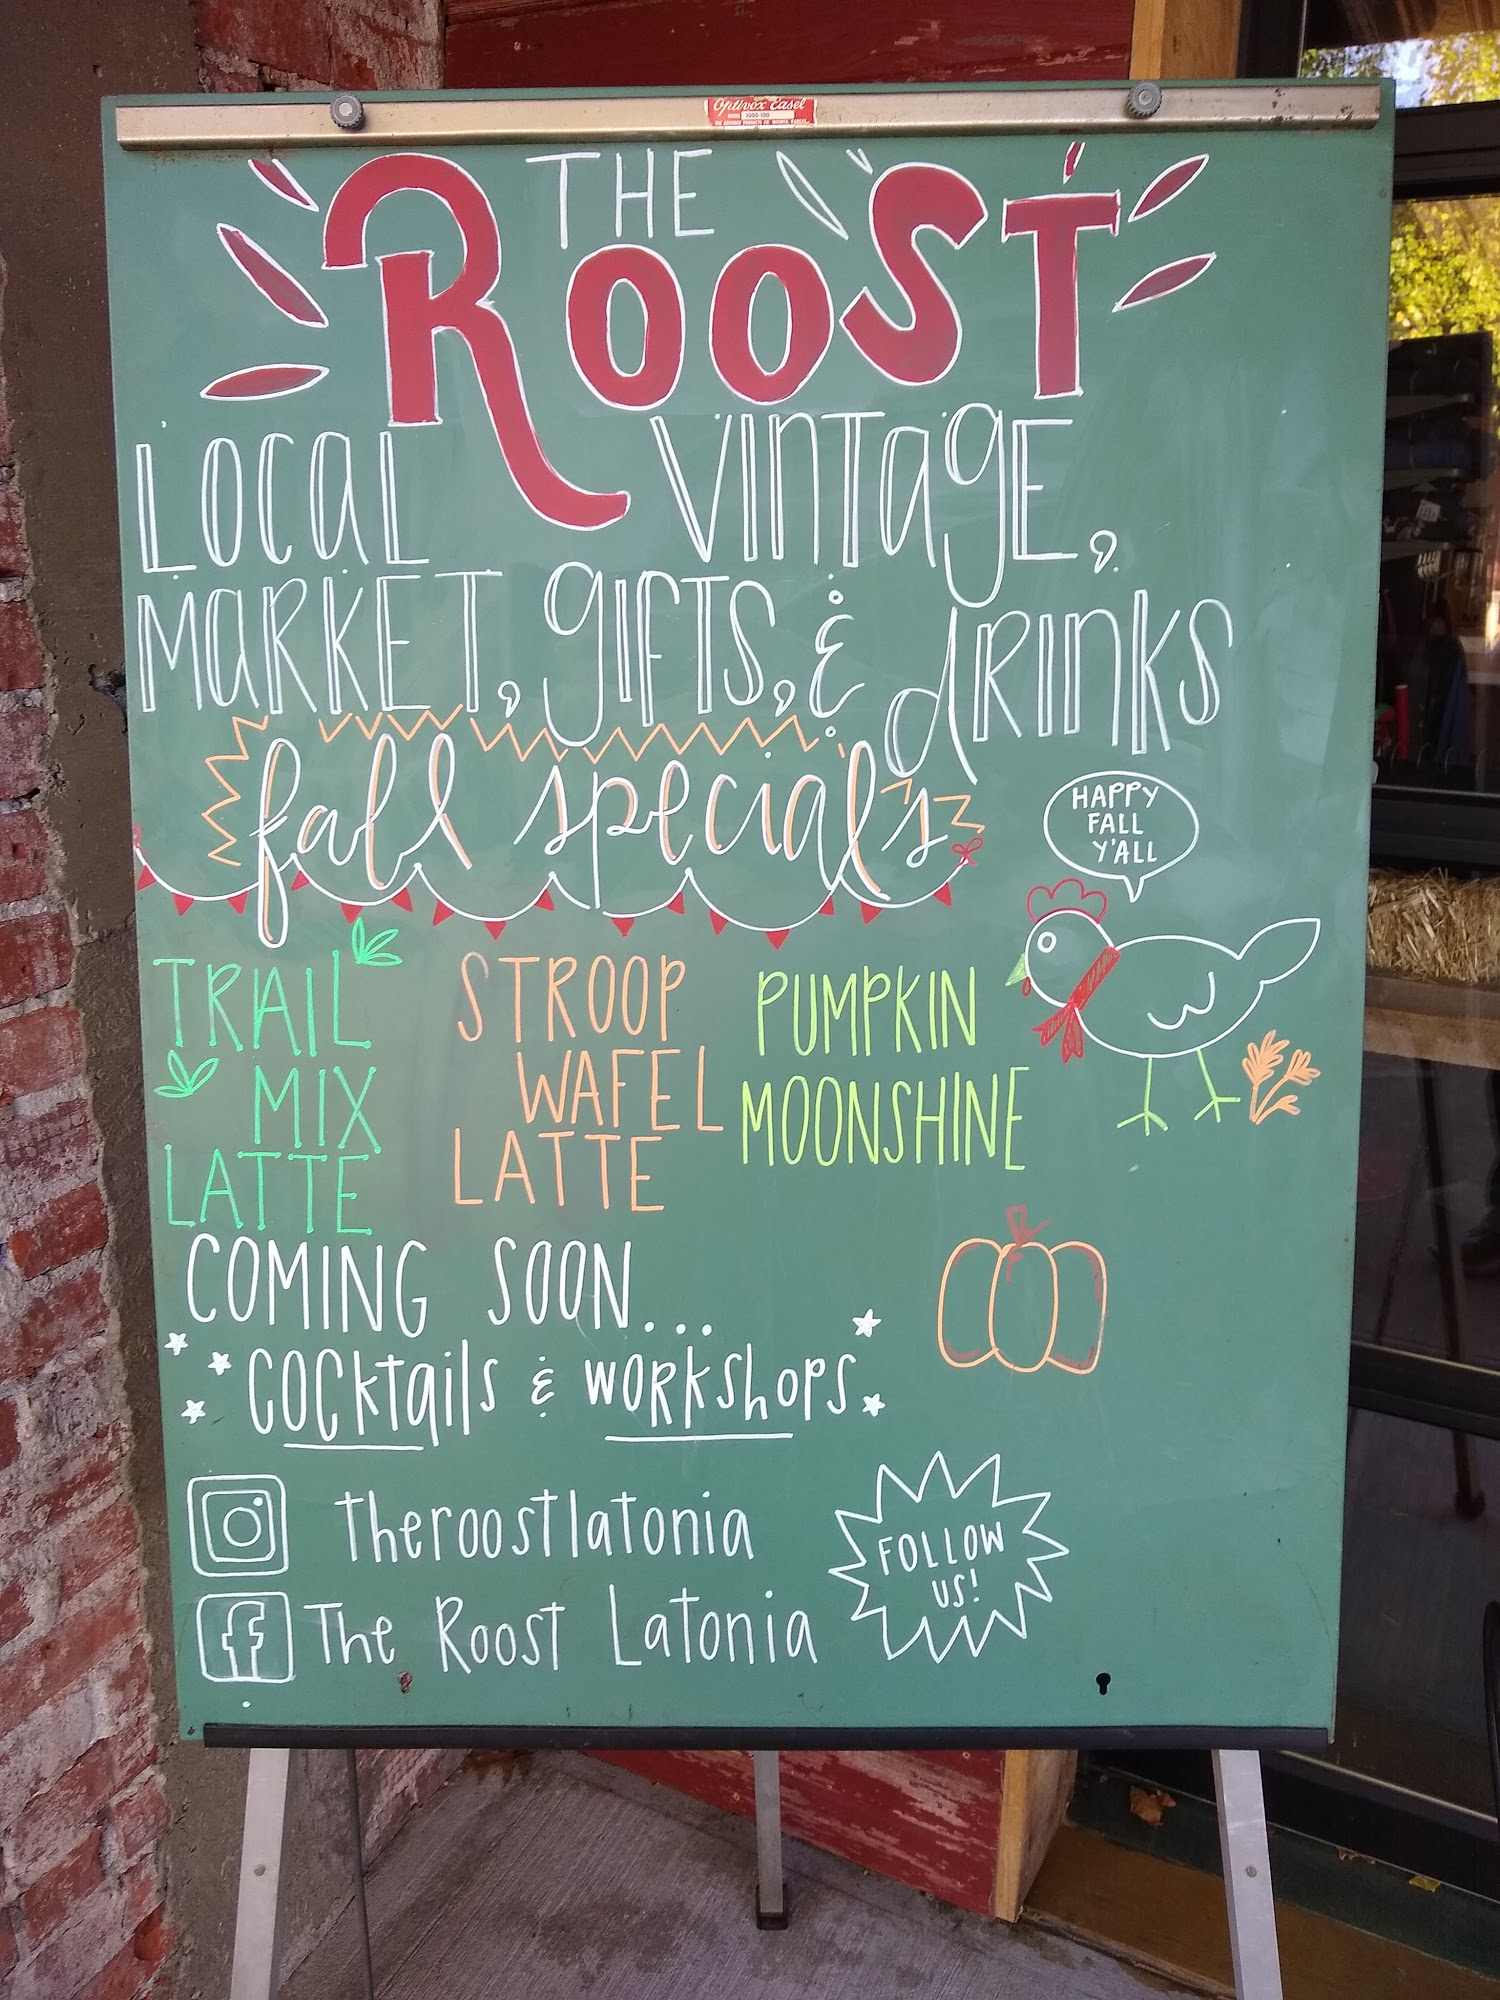 Optivox Easel
THE
ROOST
LOCAL VINTAGE,
MARKET, GIFTS, & DRINKS
fall specials
HAPPY
FALL
Y'ALL
TRAIL
MIX
LATTE
STROOP
WAFEL
LATTE
PUMPKIN
MOONSHINE
COMING SOON...
COCKTAILS & WORKSHOPS
theroostlatonia
f The Roost Latonia
FOLLOW
US!